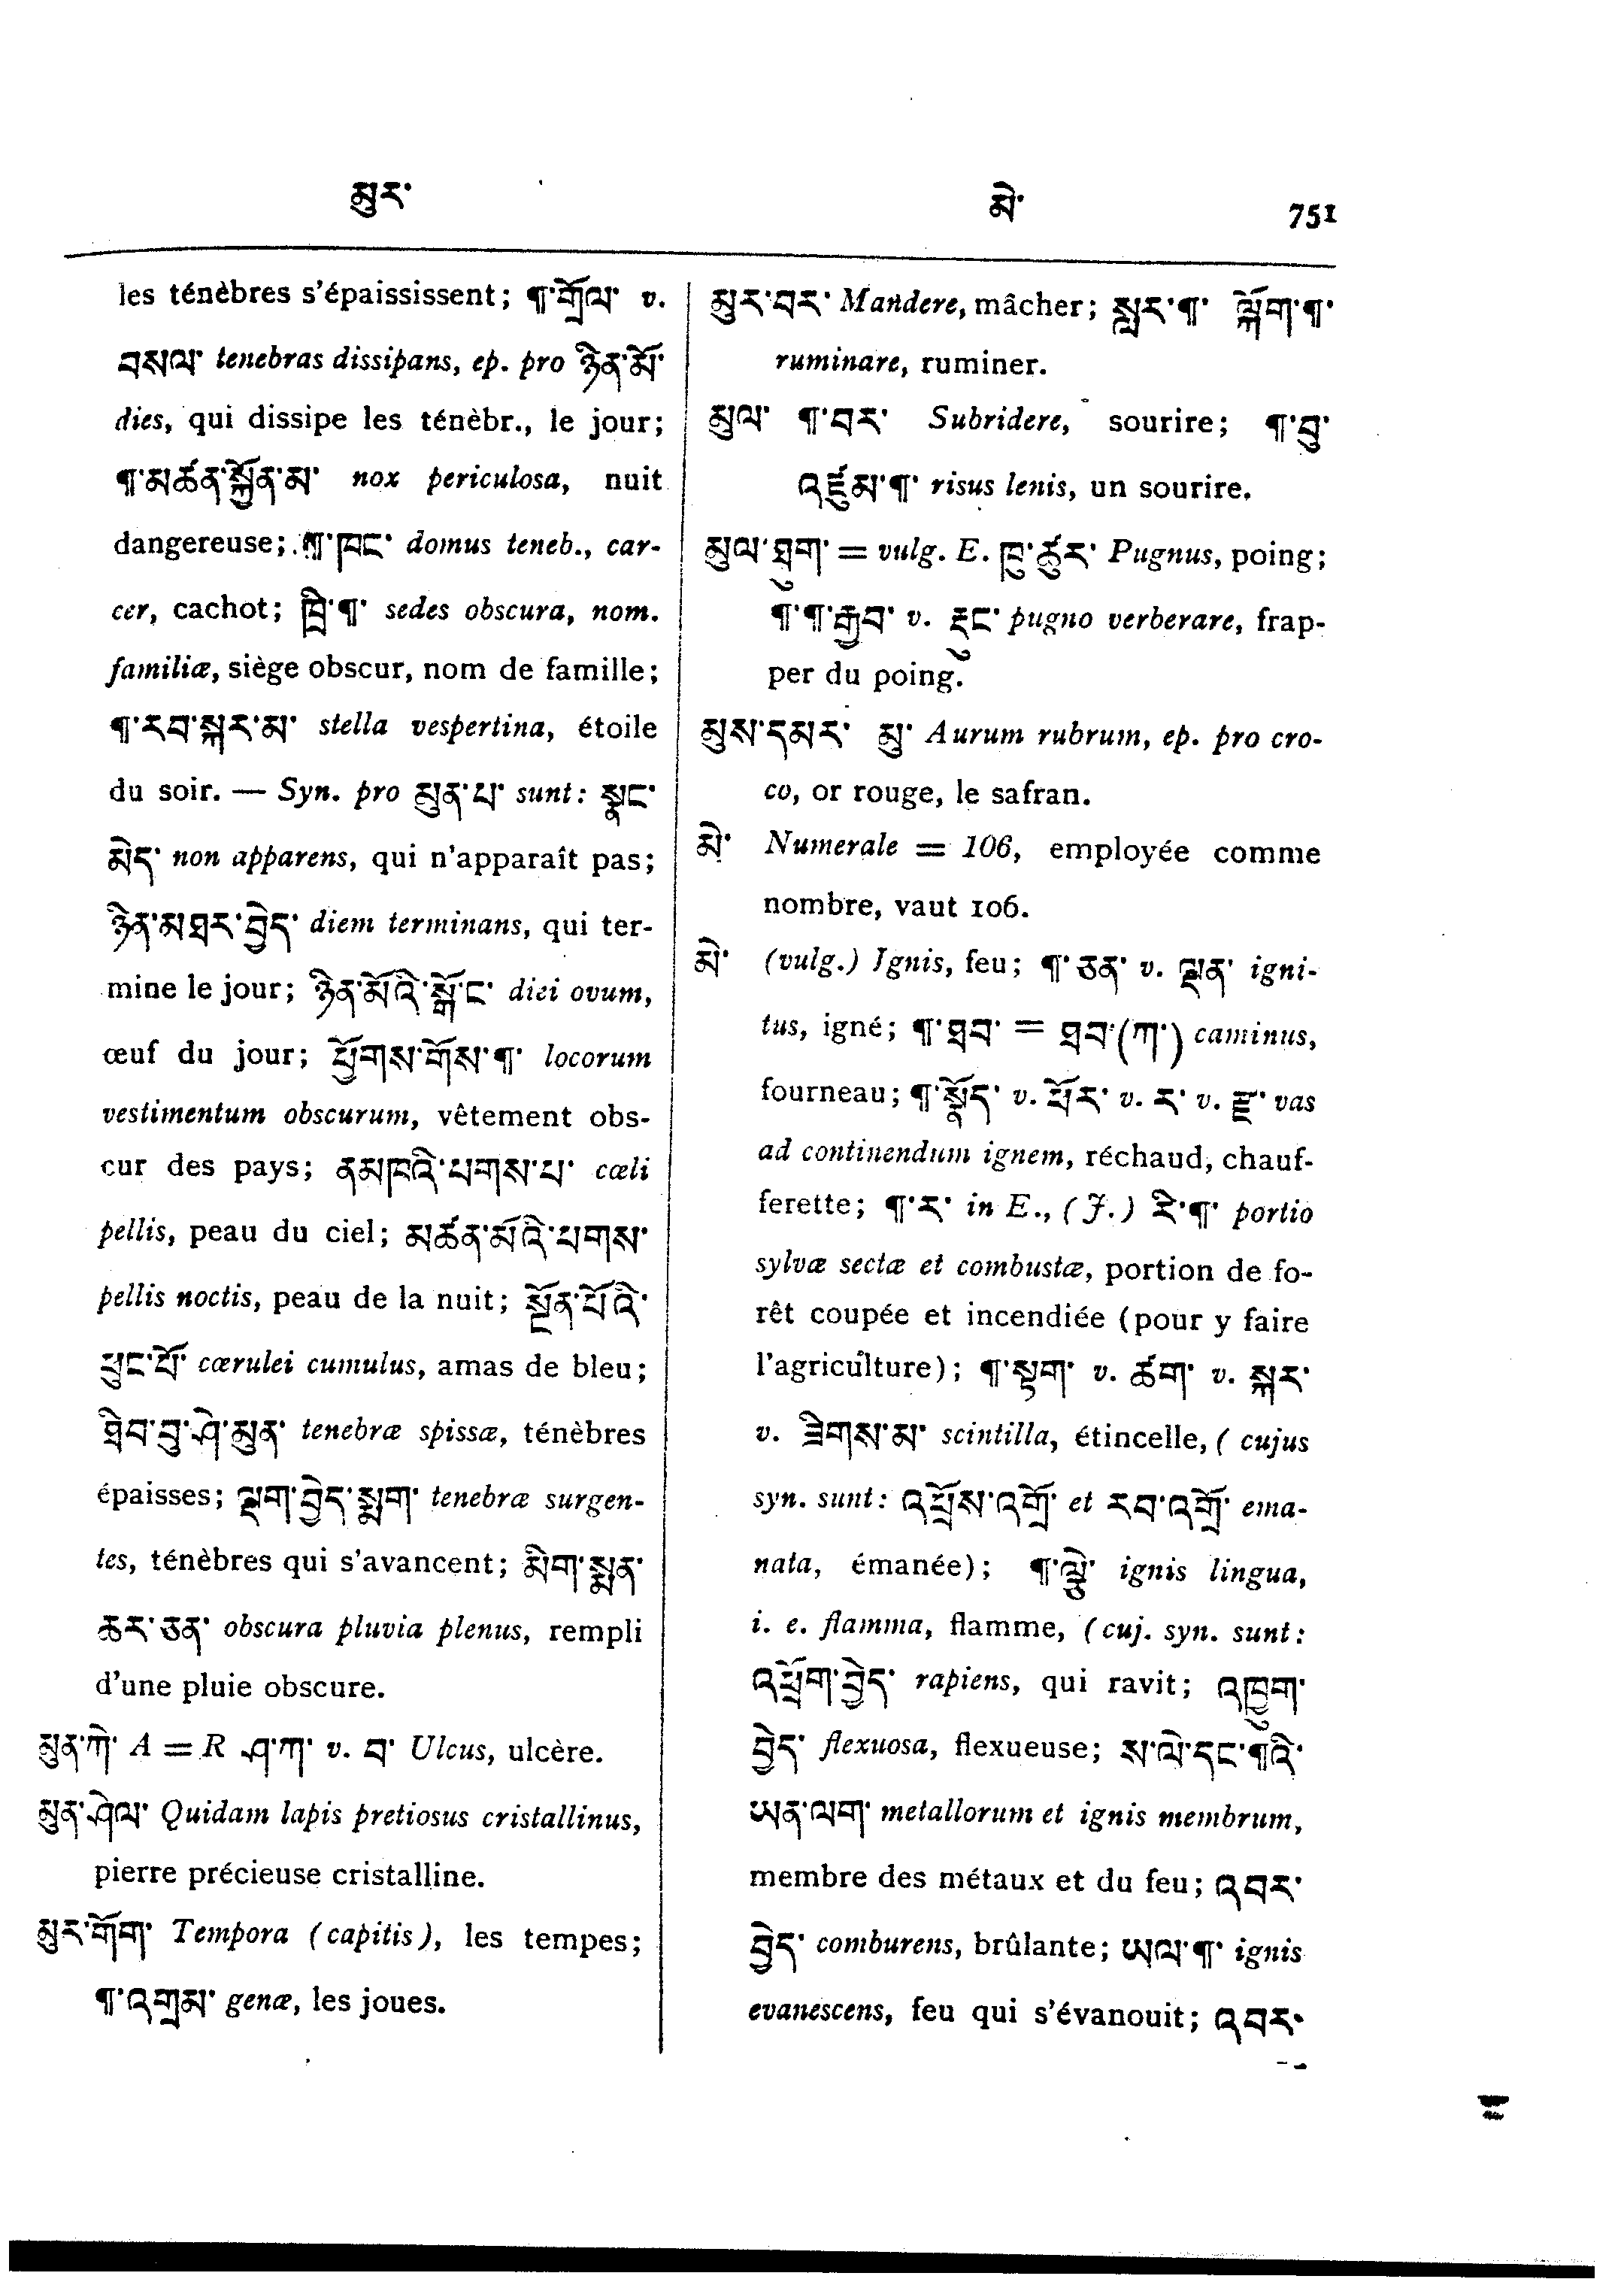 མུར་
མེ་
751
les ténèbres s'épaississent; ¶་གྲོལ་ v.
བསལ་ tenebras dissipans, ep. pro ཉིན་མོ་
dies, qui dissipe les ténèbr., le jour;
¶་མཚན་སྐྱོན་མ་ nox periculosa, nuit
dangereuse; ¶་ཁང་ domus teneb., car-
cer, cachot; ཁྲི་¶་ sedes obscura, nom.
familiæ, siège obscur, nom de famille;
¶་རབ་སྐར་མ་ stella vespertina, étoile
du soir. — Syn. pro མུན་པ་ sunt: སྣང་
མེད་ non apparens, qui n'apparaît pas;
ཉིན་མཐར་བྱེད་ diem terminans, qui ter-
mine le jour; ཉིན་མོའི་སྒོ་ང་ diei ovum,
œuf du jour; ཕྱོགས་གོས་¶་ locorum
vestimentum obscurum, vêtement obs-
cur des pays; ནམཁའི་པགས་པ་ cœli
pellis, peau du ciel; མཚན་མོའི་པགས་
pellis noctis, peau de la nuit; སྔོན་པོའི་
ཕུང་པོ་ cœrulei cumulus, amas de bleu;
ཐིབ་བུ་ཤེ་མུན་ tenebræ spissæ, ténèbres
épaisses; ལྡག་བྱེད་སྨག་ tenebræ surgen-
tes, ténèbres qui s'avancent; མིག་སྨན་
ཆར་ཅན་ obscura pluvia plenus, rempli
d'une pluie obscure.
མུན་ཀེ་ A = R ཤ་ཀ་ v. བ་ Ulcus, ulcère.
མུན་ཤེལ་ Quidam lapis pretiosus cristallinus,
pierre précieuse cristalline.
མུར་གོག་ Tempora (capitis), les tempes;
¶་འགྲམ་ genæ, les joues.
མུར་བར་ Mandere, mâcher; སླར་¶་ ལྐོག་¶་
ruminare, ruminer.
མུལ་ ¶་བར་ Subridere, sourire; ¶་བུ་
འཛུམ་¶་ risus lenis, un sourire.
མུལ་ཐུག་ = vulg. E. ཁུ་ཚུར་ Pugnus, poing;
¶་¶་རྒྱབ་ v. རྡུང་ pugno verberare, frap-
per du poing.
མུས་དམར་ མུ་ Aurum rubrum, ep. pro cro-
co, or rouge, le safran.
མེ་ Numerale = 106, employée comme
nombre, vaut 106.
མེ་ (vulg.) Ignis, feu; ¶་ཅན་ v. ལྡན་ igni-
tus, igné; ¶་ཐབ་ = ཐབ་(ཀ་) caminus,
fourneau; ¶་སྣོད་ v. ཕོར་ v. ར་ v. རྫ་ vas
ad continendum ignem, réchaud, chauf-
ferette; ¶་ར་ in E., (J.) རི་¶་ portio
sylvæ sectæ et combustæ, portion de fo-
rêt coupée et incendiée (pour y faire
l'agriculture); ¶་སྟག་ v. ཚག་ v. སྐར་
v. ཟེགས་མ་ scintilla, étincelle, (cujus
syn. sunt: འཕྲོས་འགྲོ་ et རབ་འགྲོ་ ema-
nata, émanée); ¶་ལྕེ་ ignis lingua,
i. e. flamma, flamme, (cuj. syn. sunt:
འཕྲོག་བྱེད་ rapiens, qui ravit; འཁྱུག་
བྱེད་ flexuosa, flexueuse; ས་ལེ་དང་¶འི་
ཡན་ལག་ metallorum et ignis membrum,
membre des métaux et du feu; འབར་
བྱེད་ comburens, brûlante; ཡལ་¶་ ignis
evanescens, feu qui s'évanouit; འབར་